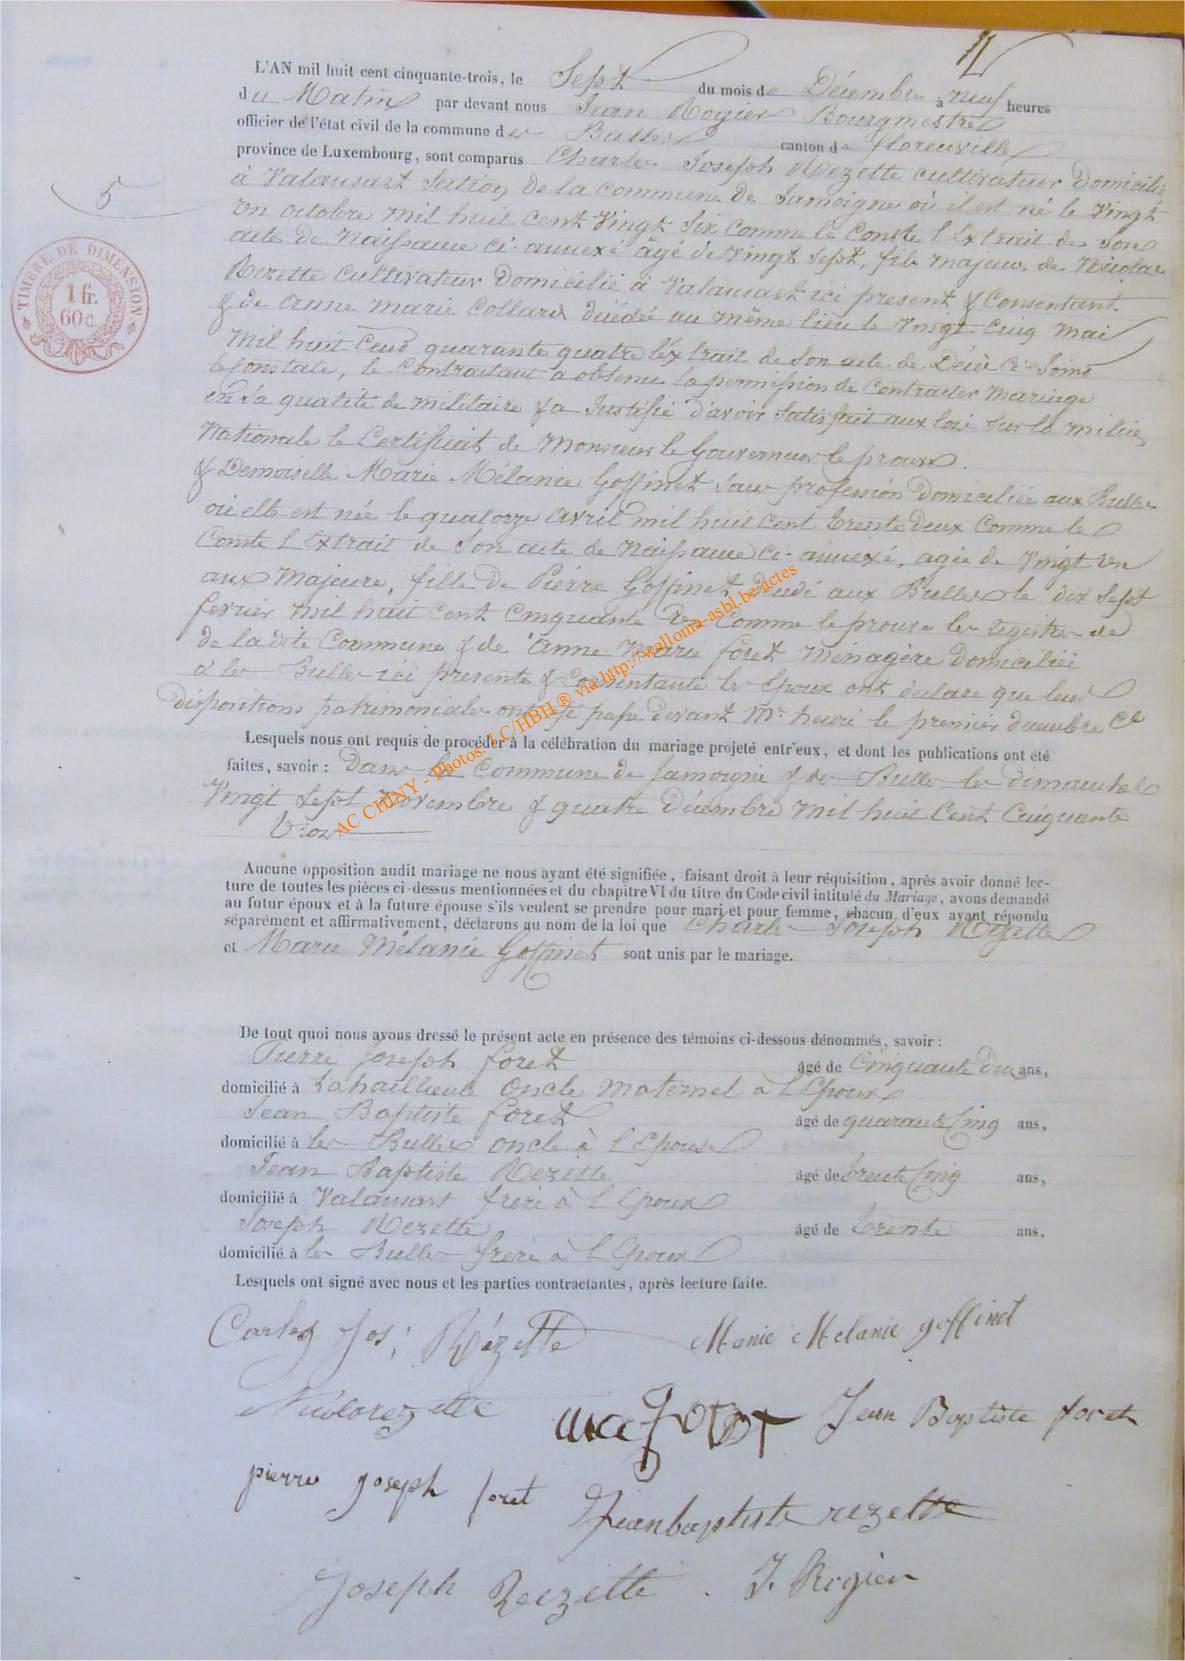 L'AN mil huit cent cinquante-trois, le Sept du mois de Décembre à neuf heures
du Matin par devant nous Jean Rogier Bourgmestre
officier de l'état civil de la commune des Bulles canton de florenville
province de Luxembourg, sont comparus Charles Joseph Rezette cultivateur domicilié
à Valansart Section de la commune de Jamoigne où il est né le Vingt
un octobre mil huit cent Vingt Six comme le Conste l'Extrait de Son
acte de Naissance ci-annexé âgé de Vingt Sept, fils majeur de Nicolas
Rezette cultivateur Domicilié à Valansart ici present & Consentant
& de Anne marie Collard décédée au même lieu le Vingt Cinq Mai
Mil huit Cent quarante quatre l'extrait de Son acte de Décès Ci-Joint
le Constate, le Contractant a obtenu la permission de Contracter Mariage
en Sa qualité de militaire & a Justifié d'avoir Satisfait aux lois Sur la milice
Nationale le Certificat de Monsieur le Gouverneur le prouve.
& Demoiselle Marie Mélanie Goffinet Sans profession Domiciliée aux Bulles
où elle est née le quatorze avril mil huit Cent trente deux Comme le
Conste l'Extrait de Son acte de Naissance ci-annexé, agée de Vingt un
ans Majeure, fille de Pierre Goffinet décédé aux Bulles le dix Sept
fevrier mil huit Cent Cinquante Comme le prouve les registres de
de la dite Commune & de Anne Marie foret Ménagère Domiciliée
à les Bulles ici presente & Consentante les Epoux ont déclaré que leurs
Dispositions patrimoniales ont été passé devant Mr henri le premier decembre Ct
Lesquels nous ont requis de procéder à la célébration du mariage projeté entr'eux, et dont les publications ont été
faites, savoir : Dans la Commune de Jamoigne & des Bulles les dimanches
Vingt Sept Novembre & quatre Décembre mil huit Cent Cinquante
trois
Aucune opposition audit mariage ne nous ayant été signifiée, faisant droit à leur réquisition, après avoir donné lec-
ture de toutes les pièces ci-dessus mentionnées et du chapitre VI du titre du Code civil intitulé du Mariage, avons demandé
au futur époux et à la future épouse s'ils veulent se prendre pour mari et pour femme, chacun d'eux ayant répondu
séparément et affirmativement, déclarons au nom de la loi que Charles Joseph Rezette
et Marie Mélanie Goffinet sont unis par le mariage.
De tout quoi nous avons dressé le présent acte en présence des témoins ci-dessous dénommés, savoir :
Pierre Joseph foret âgé de Cinquante Deux ans,
domicilié à Lahaillieule Oncle Maternel à l'Epoux
Jean Baptiste foret âgé de quarante Cinq ans,
domicilié à les Bulles oncle à l'Epouse
Jean Baptiste Rezette âgé de trente Cinq ans,
domicilié à Valansart frère à l'Epoux
Joseph Rezette âgé de trente ans,
domicilié à les Bulles frère à l'Epoux
Lesquels ont signé avec nous et les parties contractantes, après lecture faite.
Carles Jos; Rézette Marie Melanie goffinet
Nicolorezette Jean Baptiste foret
pierre joseph foret Jeanbaptiste rezette
Joseph Rezette . J. Rogier
5
TIMBRE DE DIMENSION
1 fr.
60 c.
AC CHINY - Photos: LC/HBH ® via http://wallonia-asbl.be/actes